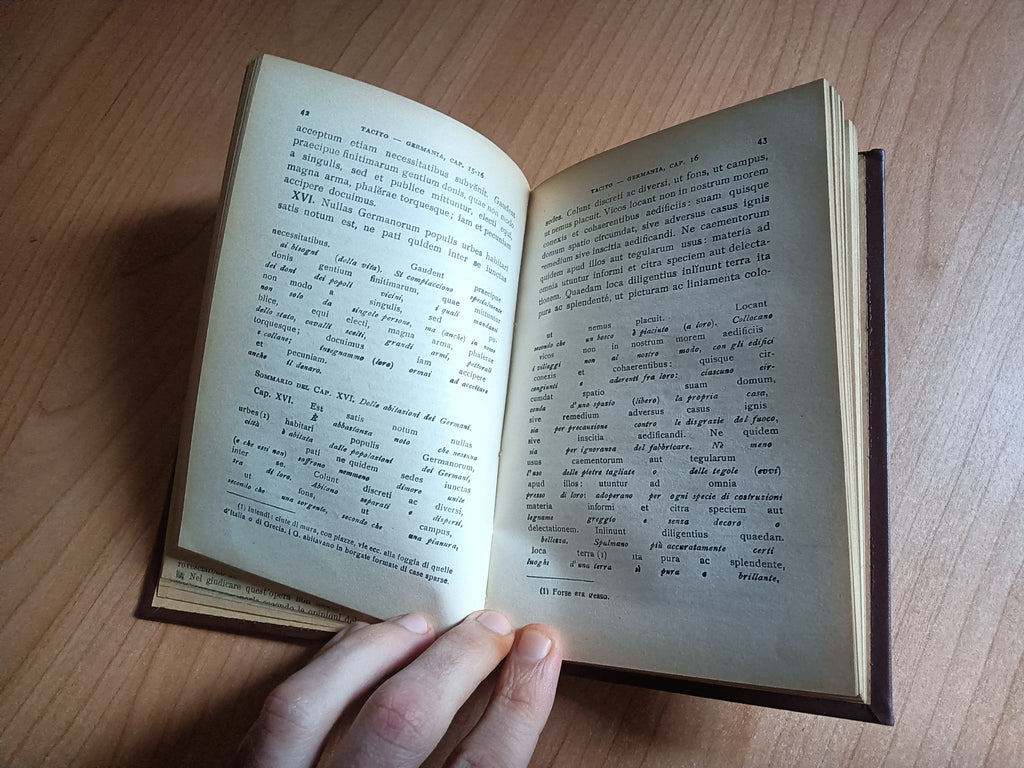 42
TACITO — GERMANIA, CAP. 15-16
acceptum etiam necessitatibus subvĕnit. Gaudent
praecipue finitimarum gentium donis, quae non modo
a singulis, sed et publice mittuntur, electi equi,
magna arma, phalĕrae torquesque; iam et pecuniam
accipere docuimus.
XVI. Nullas Germanorum populis urbes habitari
satis notum est, ne pati quidem inter se iunctas
necessitatibus. Gaudent praecipue
ai bisogni (della vita). Si compiacciono specialmente
donis gentium finitimarum, quae mittuntur
dei doni dei popoli vicini, i quali mandansi
non modo a singulis, sed pu-
non solo da singole persone, ma (anche) in nome
blice, equi electi, magna arma, phalerae
dello stato, cavalli scelti, grandi armi, pettorali
torquesque; docuimus iam accipere
e collane; insegnammo (loro) ormai ad accettare
et pecuniam.
anche il denaro.
SOMMARIO DEL CAP. XVI. Delle abitazioni dei Germani.
Cap. XVI. Est satis notum nullas
È abbastanza noto che nessuna
urbes (1) habitari populis Germanorum,
città è abitata dalle popolazioni dei Germani,
pati ne quidem sedes iunctas
(e che essi non) soffrono nemmeno dimore unite
inter se. Colunt discreti ac diversi,
tra di loro. Abitano separati e dispersi,
ut fons, ut campus,
secondo che una sorgente, secondo che una pianura,
(1) Intendi: cinte di mura, con piazze, vie ecc. alla foggia di quelle
d'Italia o di Grecia. I G. abitavano in borgate formate di case sparse.
rovesciaro
Nel giudicare quest'opera non
secondo le opinioni de
TACITO — GERMANIA, CAP. 16
43
sedes. Colunt discreti ac diversi, ut fons, ut campus,
ut nemus placuit. Vicos locant non in nostrum morem
conexis et cohaerentibus aedificiis: suam quisque
domum spatio circumdat, sive adversus casus ignis
remedium sive inscitia aedificandi. Ne caementorum
quidem apud illos aut tegularum usus: materia ad
omnia utuntur informi et citra speciem aut delecta-
tionem. Quaedam loca diligentius inlĭnunt terra ita
pura ac splendentĕ, ut picturam ac liniamenta colo-
ut nemus placuit. Locant
secondo che un bosco è piaciuto (a loro). Collocano
vicos non in nostrum morem aedificiis
i villaggi non al nostro modo, con gli edifici
conexis et cohaerentibus: quisque cir-
congiunti e aderenti fra loro: ciascuno cir-
cumdat spatio suam domum,
conda d'uno spazio (libero) la propria casa,
sive remedium adversus casus ignis
sia per precauzione contro le disgrazie del fuoco,
sive inscitia aedificandi. Ne quidem
sia per ignoranza del fabbricare. Nè meno
usus caementorum aut tegularum
l'uso delle pietre tagliate o delle tegole (evvi)
apud illos: utuntur ad omnia
presso di loro: adoperano per ogni specie di costruzioni
materia informi et citra speciem aut
legname greggio e senza decoro o
delectationem. Inlinunt diligentius quaedan.
bellezza. Spalmano più accuratamente certi
loca terra (1) ita pura ac splendente,
luoghi d'una terra sì pura e brillante,
(1) Forse era gesso.